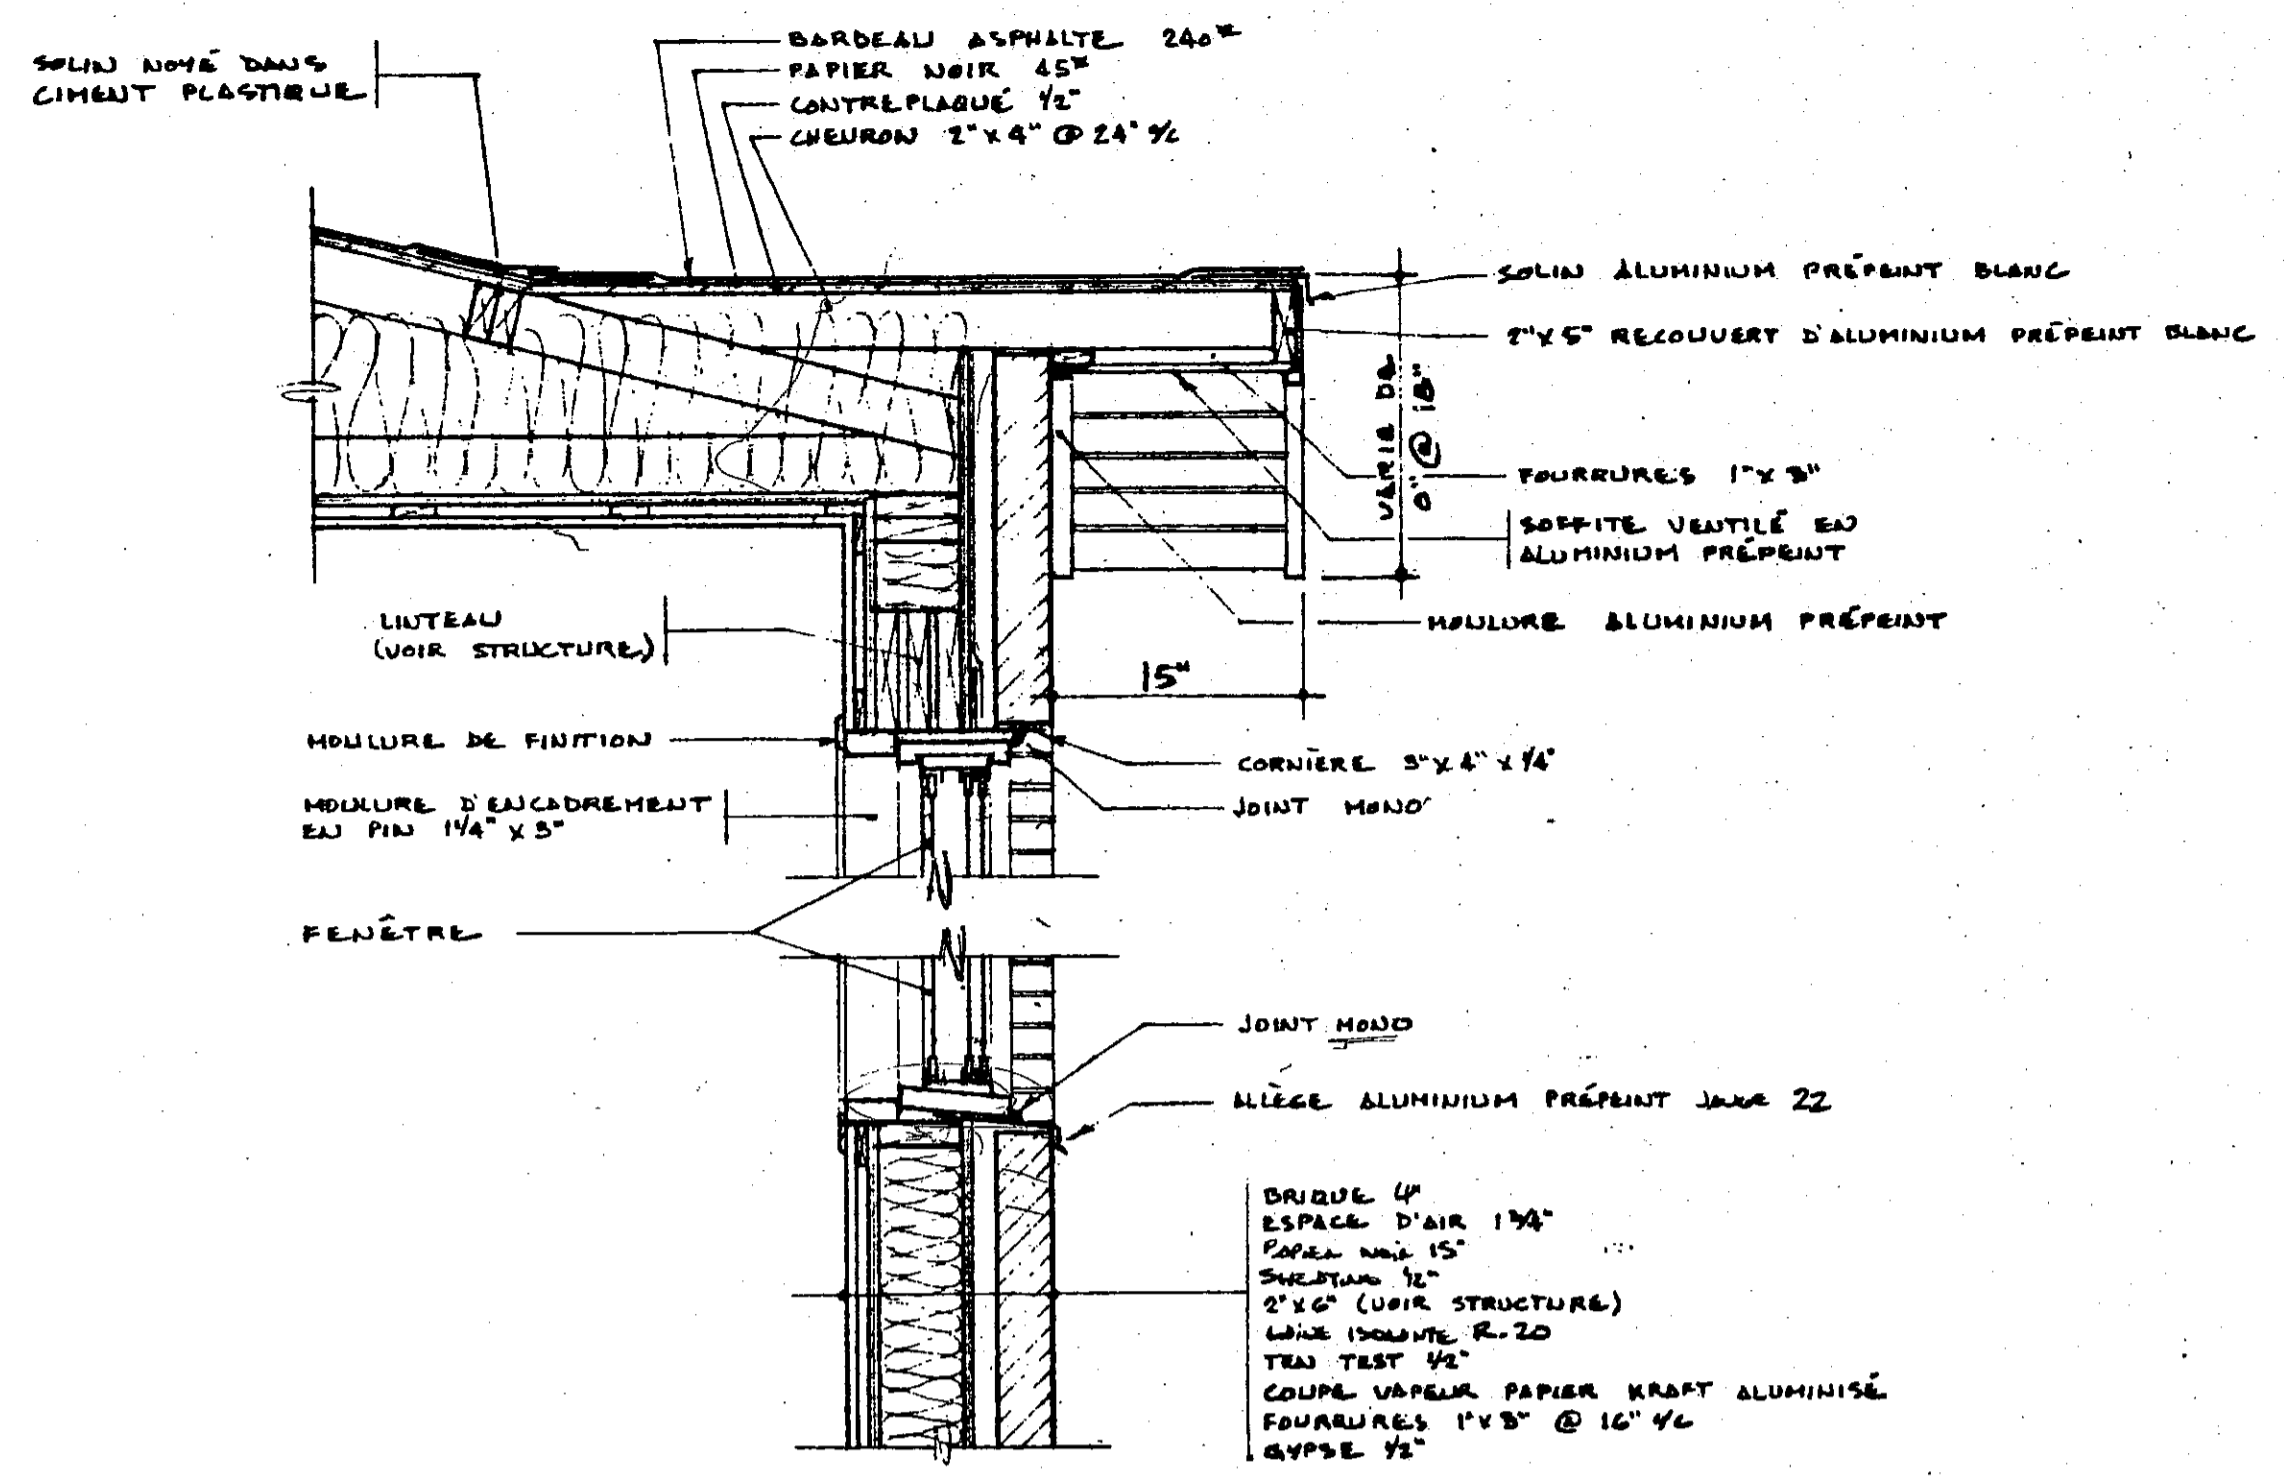 SOLIN NOYÉ DANS
CIMENT PLASTIQUE
BARDEAU ASPHALTE 240#
PAPIER NOIR 45#
CONTREPLAQUÉ 1/2"
CHEVRON 2"x4" @ 24" o/c
SOLIN ALUMINIUM PRÉPEINT BLANC
2"x5" RECOUVERT D'ALUMINIUM PRÉPEINT BLANC
VARIE DE
0" @ 18"
FOURRURES 1"x3"
SOFFITE VENTILÉ EN
ALUMINIUM PRÉPEINT
MOULURE ALUMINIUM PRÉPEINT
LINTEAU
(VOIR STRUCTURE)
15"
MOULURE DE FINITION
CORNIÈRE 3"x4"x1/4"
MOULURE D'ENCADREMENT
EN PIN 1 1/4" x 3"
JOINT MONO
FENÊTRE
JOINT MONO
ALLÈGE ALUMINIUM PRÉPEINT JAUGE 22
BRIQUE 4"
ESPACE D'AIR 1 3/4"
PAPIER NOIR 15"
1/2"
2"x6" (VOIR STRUCTURE)
LAINE ISOLANTE R-20
TEN TEST 1/2"
COUPE VAPEUR PAPIER KRAFT ALUMINISÉ
FOURRURES 1"x3" @ 16" c/c
GYPSE 1/2"